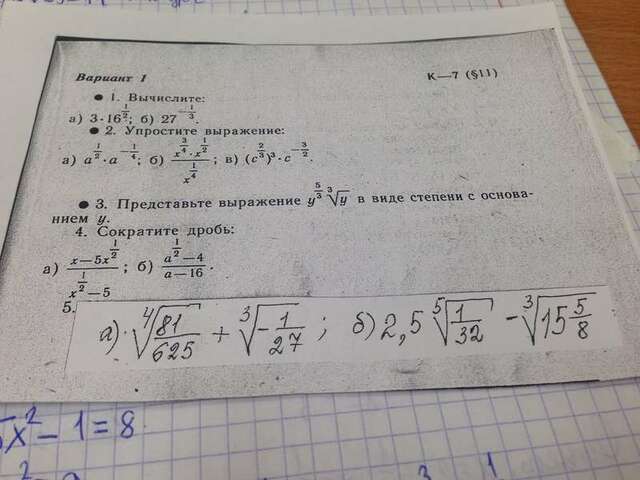 Вариант 1 К—7 (§11)
● 1. Вычислите:
а) 3·16^{1/2}; б) 27^{-1/3}.
● 2. Упростите выражение:
а) a^{1/2}·a^{-1/4}; б) \frac{x^{3/4}·x^{1/2}}{x^{1/4}}; в) (c^{2/3})^3·c^{-3/2}.
● 3. Представьте выражение y^{5/3}∛y в виде степени с основа-
нием y.
4. Сократите дробь:
а) \frac{x−5x^{1/2}}{x^{1/2}−5}; б) \frac{a^{1/2}−4}{a−16}.
5.
а) ∜(81/625) + ∛(−1/27); б) 2,5 ⁵√(1/32) − ∛(15 5/8)
5x² − 1 = 8